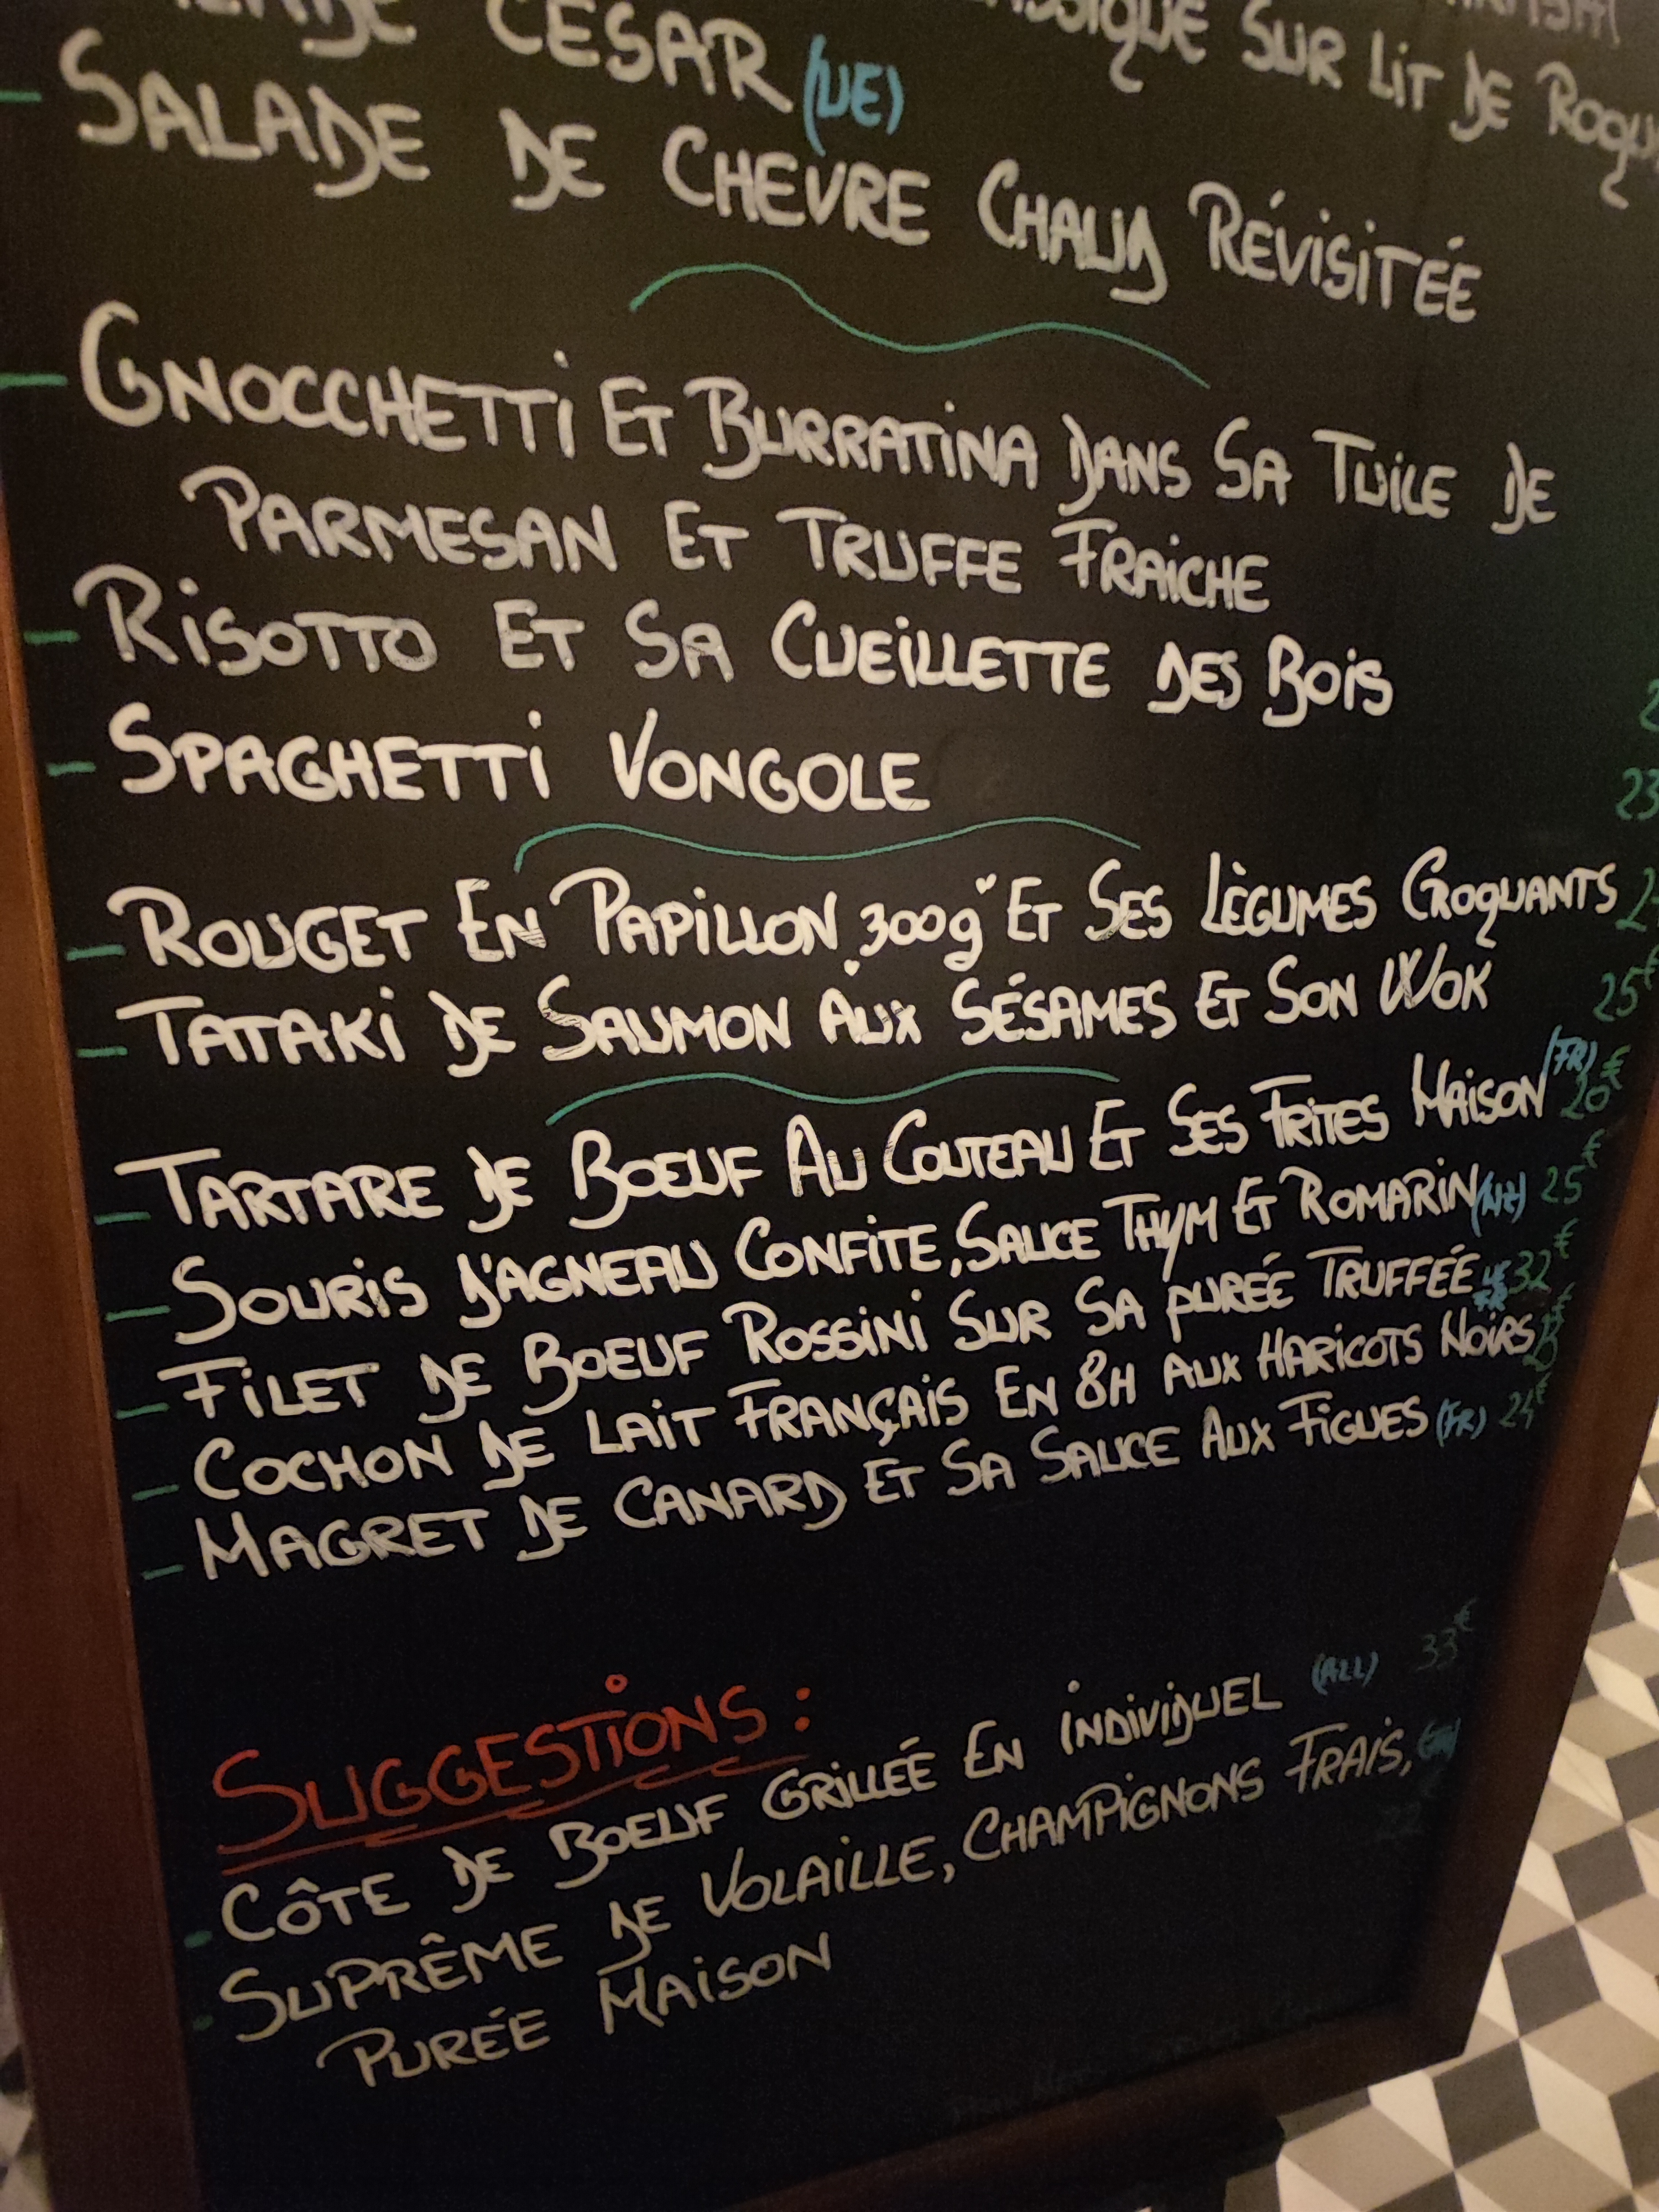 CÉSAR (UE)
SUR LIT DE
- SALADE DE CHEVRE CHAUD RÉVISITÉE
- GNOCCHETTI ET BURRATINA DANS SA TUILE DE
PARMESAN ET TRUFFE FRAICHE
- RISOTTO ET SA CUEILLETTE DES BOIS
- SPAGHETTI VONGOLE
23
- ROUGET EN PAPILLON 300g ET SES LÈGUMES CROQUANTS
- TATAKI DE SAUMON AUX SÉSAMES ET SON WOK 25€
- TARTARE DE BOEUF AU COUTEAU ET SES FRITES MAISON (FR) 20€
- SOURIS D'AGNEAU CONFITE, SAUCE THYM ET ROMARIN (NZ) 25€
- FILET DE BOEUF ROSSINI SUR SA PURÉE TRUFFÉE 32€
- COCHON DE LAIT FRANÇAIS EN 8H AUX HARICOTS NOIRS
- MAGRET DE CANARD ET SA SAUCE AUX FIGUES (FR) 24€
SUGGESTIONS :
- CÔTE DE BOEUF GRILLÉE EN INDIVIDUEL (ALL) 33€
- SUPRÊME DE VOLAILLE, CHAMPIGNONS FRAIS,
PURÉE MAISON 22€